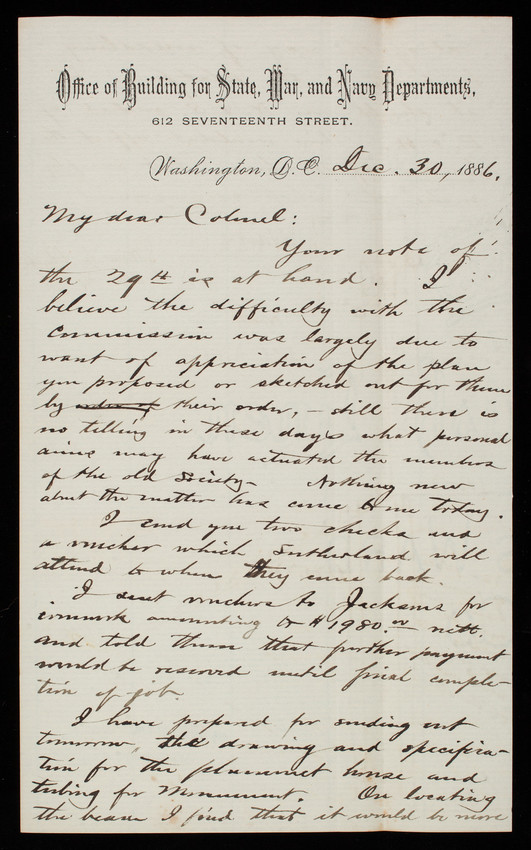 Office of Building for State, War, and Navy Departments,
612 SEVENTEENTH STREET.
Washington, D.C. Dec. 30, 1886.
My dear Colonel:
Your note of
the 29th is at hand. I
believe the difficulty with the
Commission was largely due to
want of appreciation of the plan
you proposed or sketched out for them
by order of their order, – still there is
no telling in these days what personal
aims may have actuated the members
of the old Society – Nothing new
about the matter has come to me today.
I send you two checks and
a voucher which Sutherland will
attend to when they come back.
I sent vouchers to Jacksons for
ironwork amounting to $1980.00 nett.
and told them that further payment
would be reserved until final comple-
tion of job.
I have prepared for sending out
tomorrow, the drawing and specifica-
tion for the plummet house and
tubing for Monument. On locating
the beam I find that it would be more